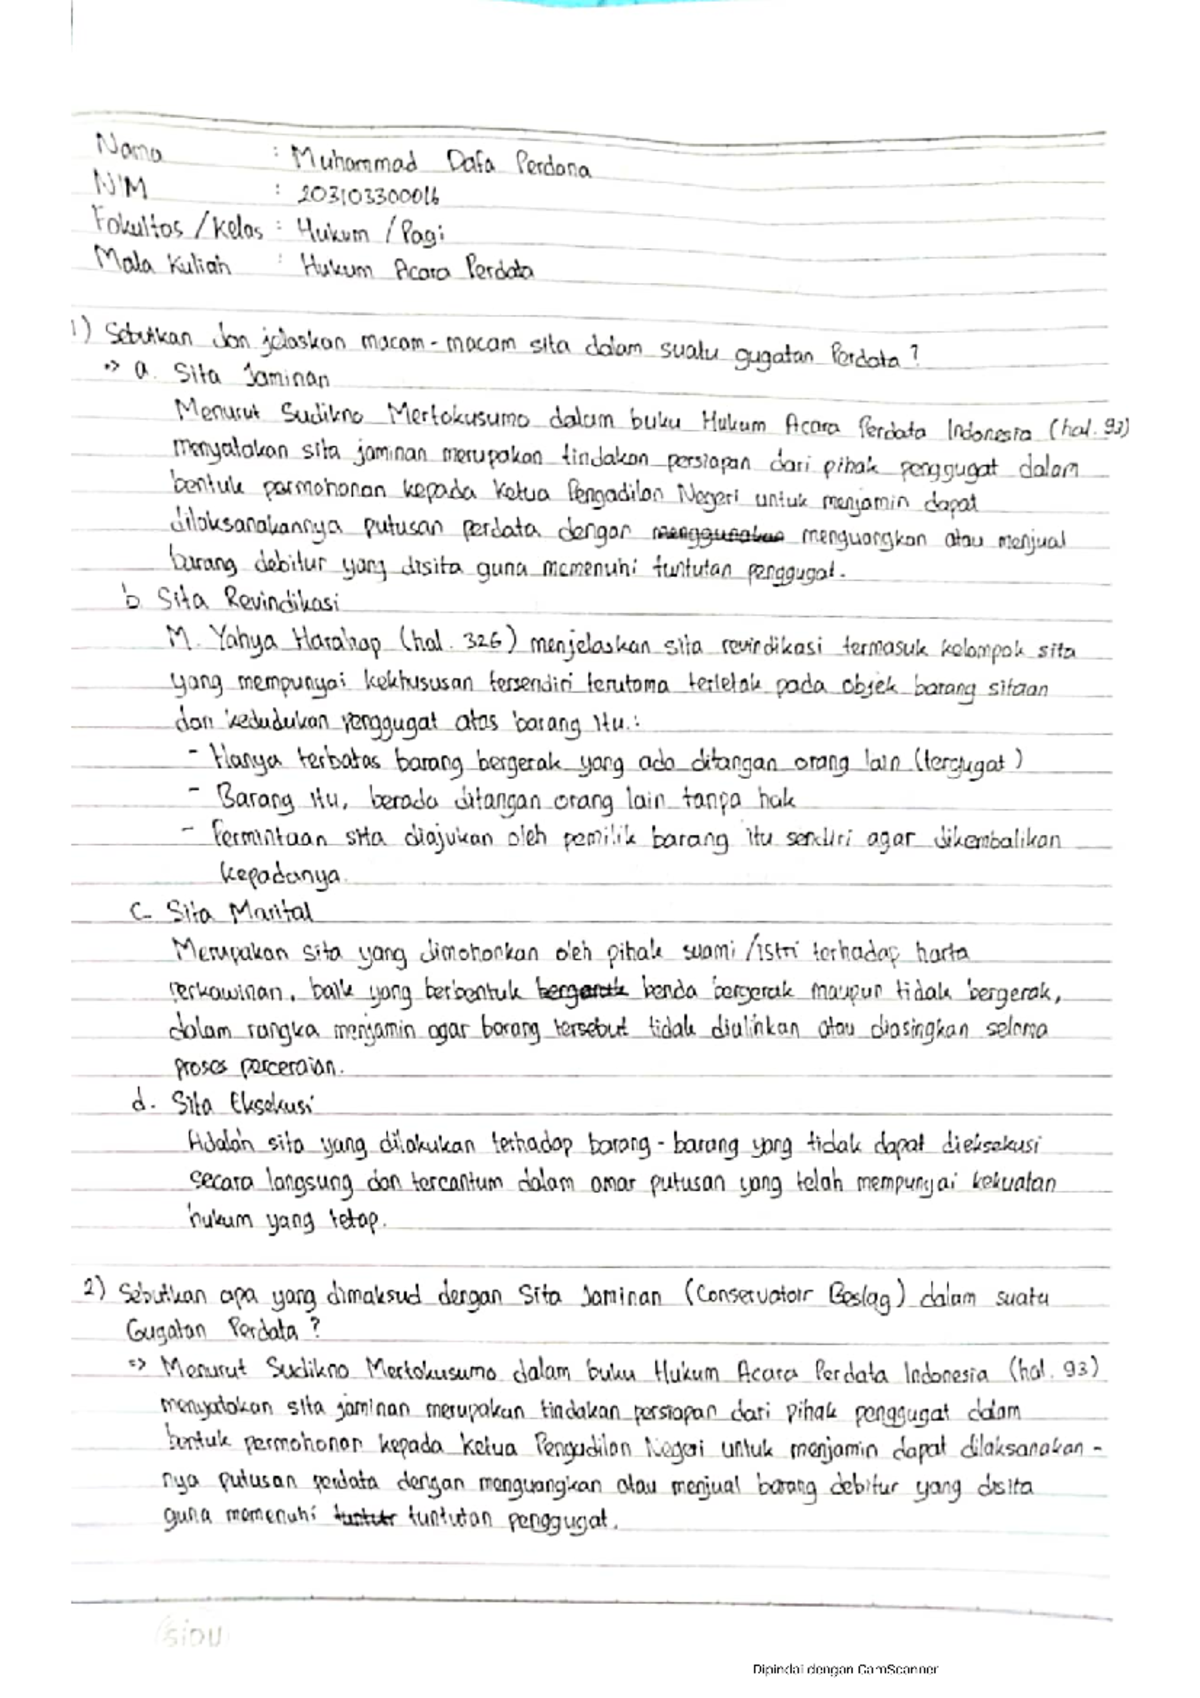 Nama : Muhammad Dafa Perdana
NIM : 203103300016
Fakultas / Kelas : Hukum / Pagi
Mata Kuliah : Hukum Acara Perdata
1) Sebutkan dan jelaskan macam-macam sita dalam suatu gugatan Perdata ?
=> a. Sita Jaminan
Menurut Sudikno Mertokusumo dalam buku Hukum Acara Perdata Indonesia (hal. 93)
menyatakan sita jaminan merupakan tindakan persiapan dari pihak penggugat dalam
bentuk permohonan kepada Ketua Pengadilan Negeri untuk menjamin dapat
dilaksanakannya putusan perdata dengan menggunakan menguangkan atau menjual
barang debitur yang disita guna memenuhi tuntutan penggugat.
b. Sita Revindikasi
M. Yahya Harahap (hal. 326) menjelaskan sita revindikasi termasuk kelompok sita
yang mempunyai kekhususan tersendiri terutama terletak pada objek barang sitaan
dan kedudukan penggugat atas barang itu :
- Hanya terbatas barang bergerak yang ada ditangan orang lain (tergugat)
- Barang itu, berada ditangan orang lain tanpa hak
- Permintaan sita diajukan oleh pemilik barang itu sendiri agar dikembalikan
kepadanya.
c. Sita Marital
Merupakan sita yang dimohonkan oleh pihak suami /istri terhadap harta
perkawinan, baik yang berbentuk bergerak benda bergerak maupun tidak bergerak,
dalam rangka menjamin agar barang tersebut tidak dialihkan atau diasingkan selama
proses perceraian.
d. Sita Eksekusi
Adalah sita yang dilakukan terhadap barang-barang yang tidak dapat dieksekusi
secara langsung dan tercantum dalam amar putusan yang telah mempunyai kekuatan
hukum yang tetap.
2) Sebutkan apa yang dimaksud dengan Sita Jaminan (Conservatoir Beslag) dalam suatu
Gugatan Perdata ?
=> Menurut Sudikno Mertokusumo dalam buku Hukum Acara Perdata Indonesia (hal. 93)
menyatakan sita jaminan merupakan tindakan persiapan dari pihak penggugat dalam
bentuk permohonan kepada Ketua Pengadilan Negeri untuk menjamin dapat dilaksanakan-
nya putusan perdata dengan menguangkan atau menjual barang debitur yang disita
guna memenuhi tuntutan penggugat.
SiDU
Dipindai dengan CamScanner